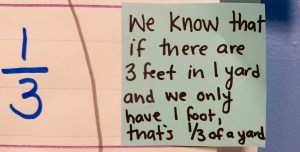 1
3
We know that
if there are
3 feet in 1 yard
and we only
have 1 foot,
that's 1/3 of a yard